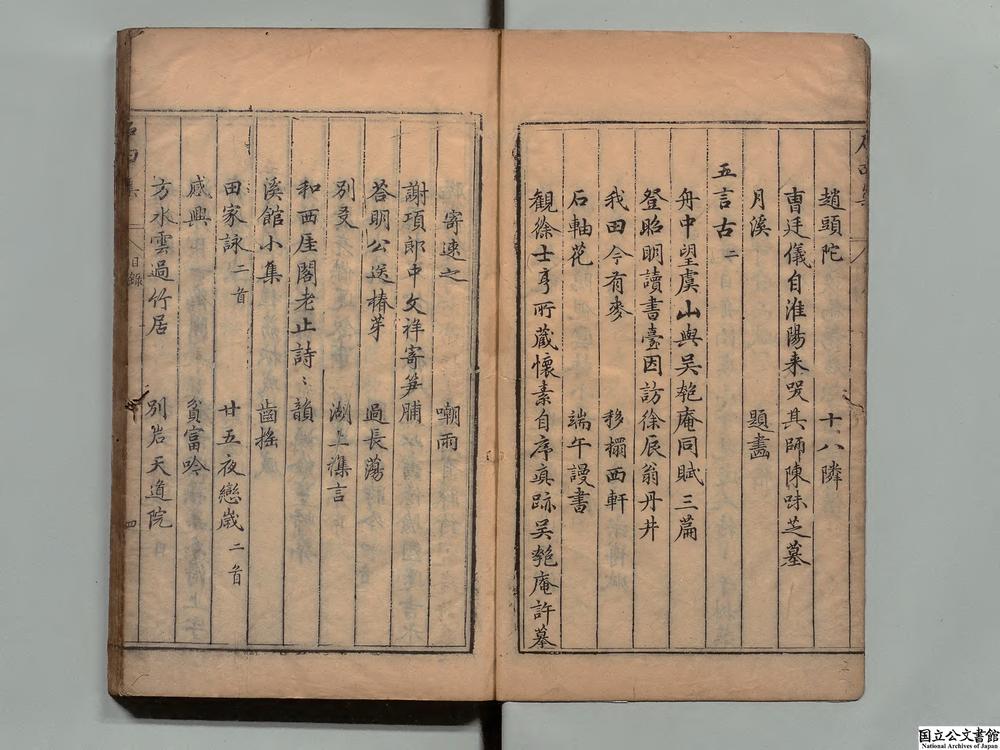 趙頭陀　十八隣
曹廷儀自淮陽来哭其師陳味芝墓
月溪　題畵
五言古二
舟中望虞山與吴匏庵同賦三篇
登昭明讀書臺因訪徐辰翁丹井
我田今有麥　移榻西軒
石軸花　端午謾書
観徐士亨所藏懷素自序真跡吴匏庵許摹
寄速之　嘲雨
謝項郎中文祥寄笋脯
荅明公送椿芽　過長蕩
別叐　湖上襍言
和西厓閣老止詩〻韻
溪館小集　齒揺
田家詠二首　廿五夜戀歳二首
感興　貧富吟
方水雲過竹居　別岩天道院
石田集　目録　四
国立公文書館
National Archives of Japan